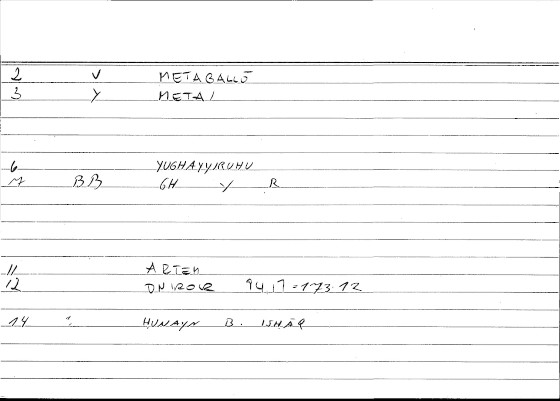 2 V METABALLŌ
3 Y META/
6 YUGHAYYIRUHU
7 BB GH Y R
11 ARTEM
12 ONIROCR 94,17=173.12
14 ". HUNAYN B. ISHĀQ